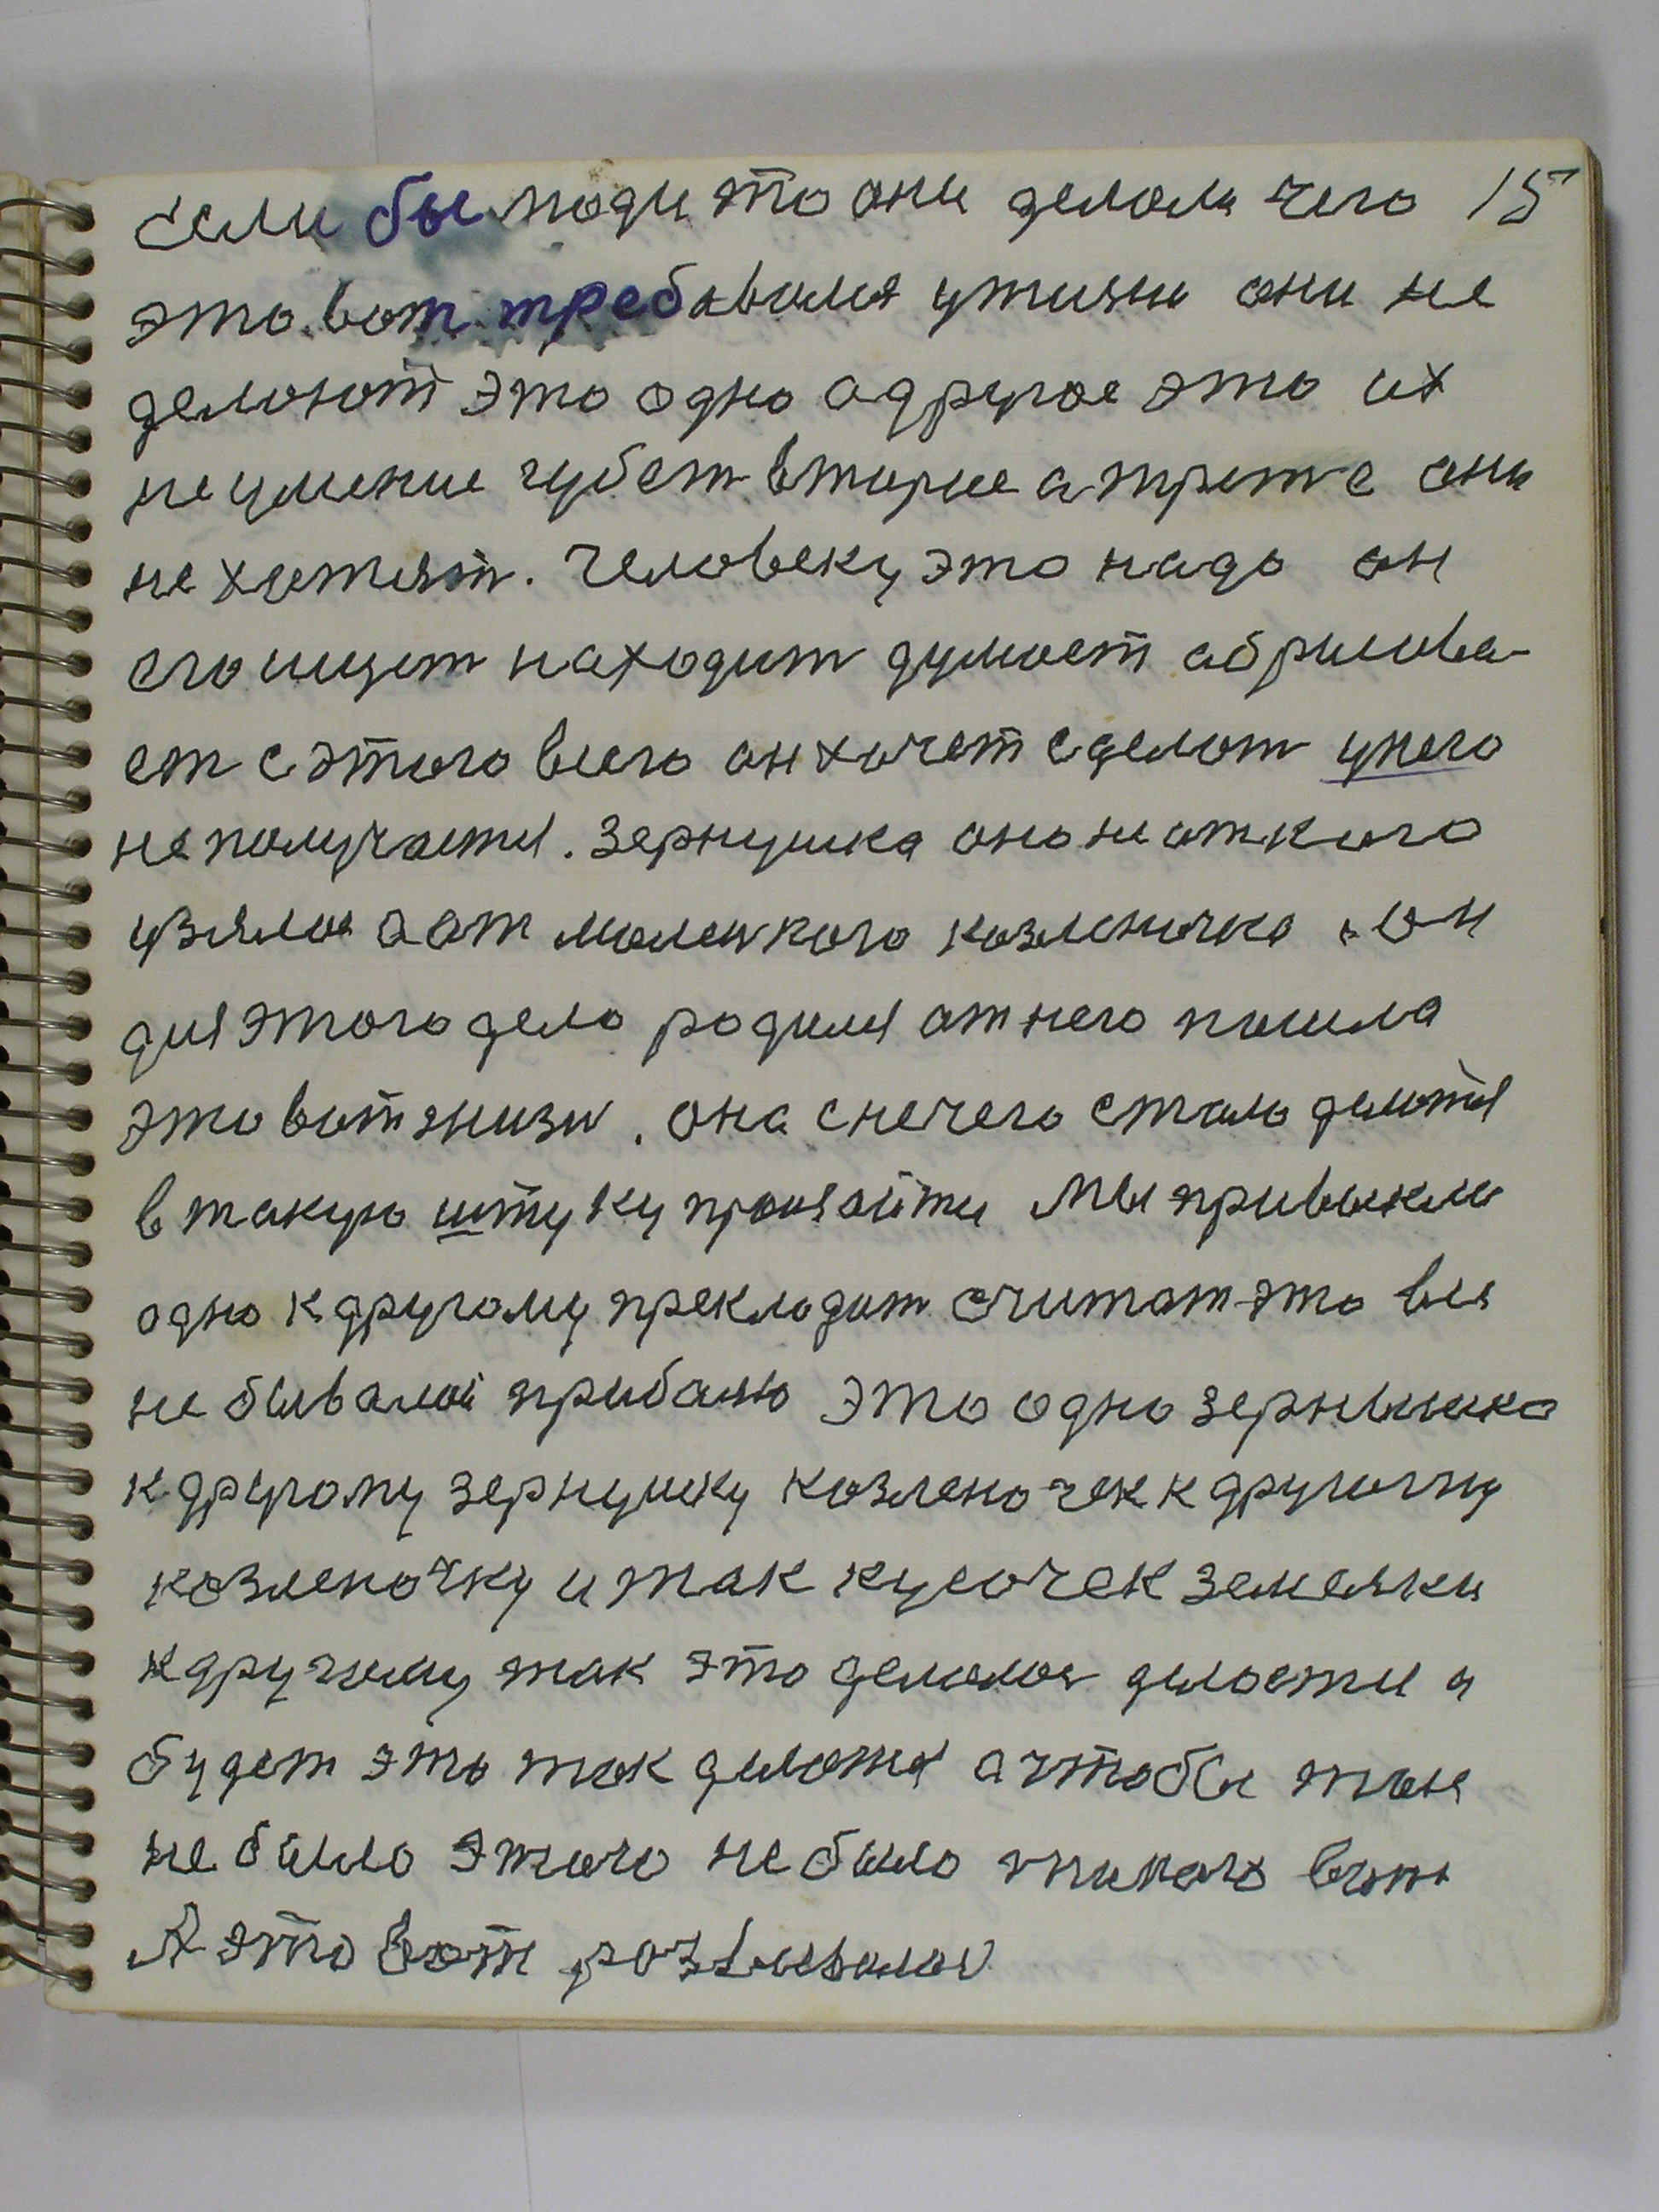 Если бы люди это они делали чего 15
это вот требавалося у жизни они не
делоют это одно а другое это их
не умение чуветвторие а третте они
не хотят. Человеку это надо он
его ищет находит думоет абрисова-
ет с этого всего он хочет сделот у него
не получается. Зернушка оно не откого
узялос а от маленкого козленочка. он
для этого дело родился от него пошла
это вот жизн. она снечего стала делотся
в такую штуку произайти Мы привыкли
одно к другому прекладит считат это вся
не бывалой прибалю это одно зернышка
к другому зернушку козленочек к другому
козленочку и так кусочек земельки
к другому так это делолос делоется и
будет это так делотся а чтобы тон
не было этого не было никого вит
А это вот розвивалос